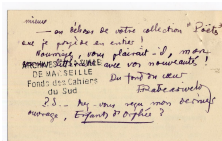 mieux
— en dehors de votre collection "Poètes"
que je possède en entier.
Nourrir, vous plairait-il, mon
avec vos nouveautés !
ARCHIVES DE LA VILLE
DE MARSEILLE
Fonds des Cahiers
du Sud
Du fond du cœur
Rabearivelo
P.S. – Avez-vous reçu mon dernier
ouvrage, Enfants d'Orphée ?